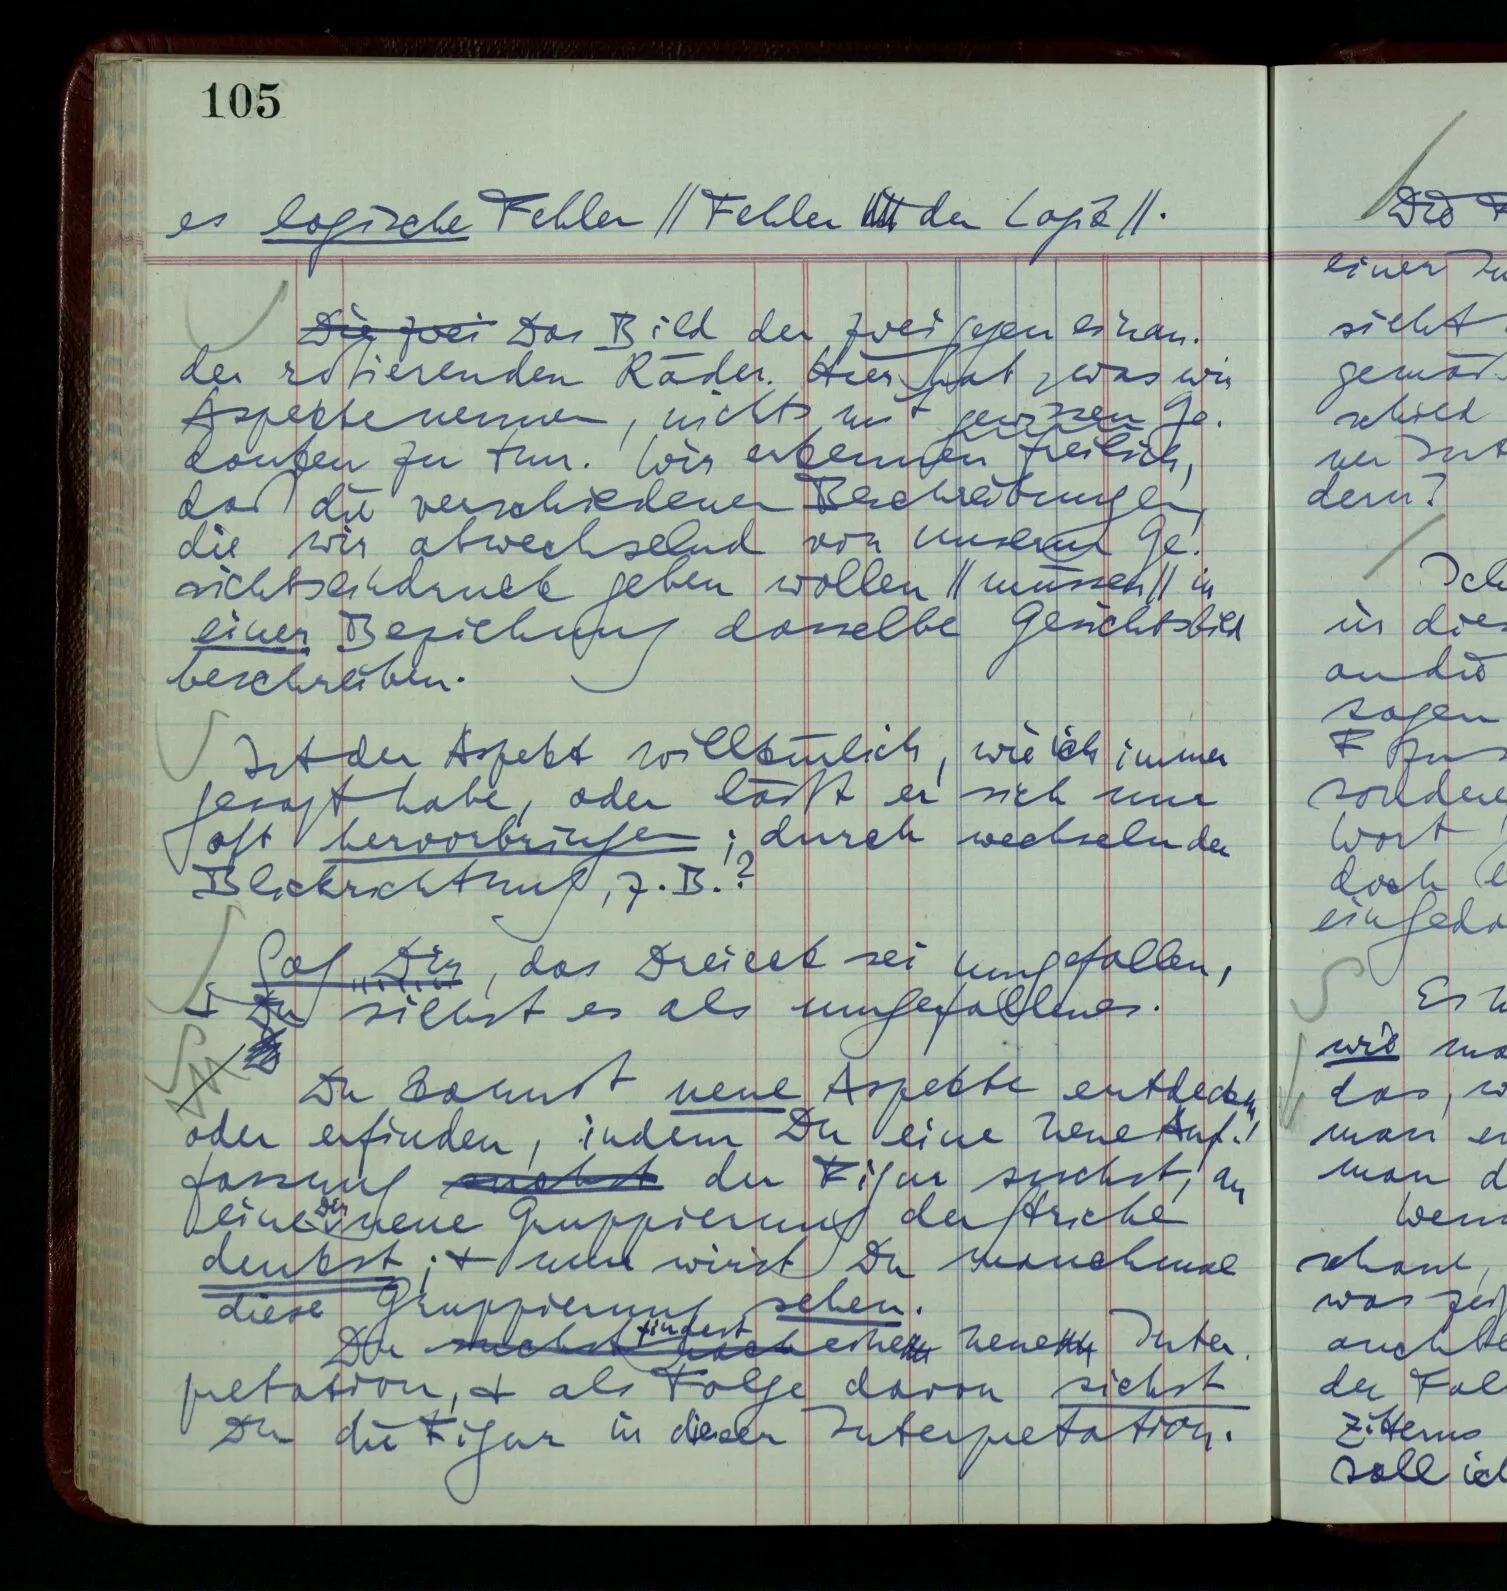 105
es logische Fehler // Fehler in der Logik //.
Die zwei Das Bild der zwei gegen einan-
der rotierenden Räder. Hier hat, was wir
Aspekte nennen, nichts mit gewissen Ge-
danken zu tun. Wir erkennen freilich,
daß die verschiedenen Beschreibungen,
die wir abwechselnd von unserm Ge-
sichtseindruck geben wollen // müssen // in
einer Beziehung dasselbe Gesichtsbild
beschreiben.
Ist der Aspekt willkürlich, wie ich immer
gesagt habe, oder läßt er sich nur
oft hervorbringen; durch wechseln der
Blickrichtung, z.B.?
Sag Dir, das Dreieck sei umgefallen,
& Du siehst es als umgefallenes.
Du kannst neue Aspekte entdecken
oder erfinden, indem Du eine neue Auf-
fassung suchst der Figur suchst, an
eine Dir neue Gruppierung der Striche
denkst; & nun wirst Du manchmal
diese Gruppierung sehen.
Du suchst nach findest eine neue Inter-
pretation, & als Folge davon siehst
Du die Figur in dieser Interpretation.
einer
sieht
gemäß
schied
dern?
Ich
in dies
an die
sagen
F zu
sondern
Wort
doch
Es
wie
das, w
man
man d
Wenn
schaut,
was
auch
der Fall
Zitterns
soll ich